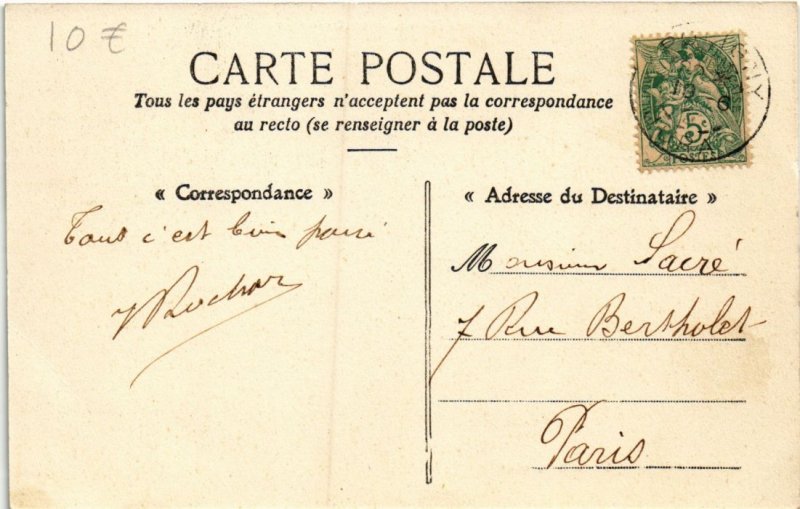 10 €
CARTE POSTALE
Tous les pays étrangers n'acceptent pas la correspondance
au recto (se renseigner à la poste)
« Correspondance »
Tout c'est bien passé
« Adresse du Destinataire »
Monsieur Sacré
7 Rue Berthollet
Paris
5
POSTES